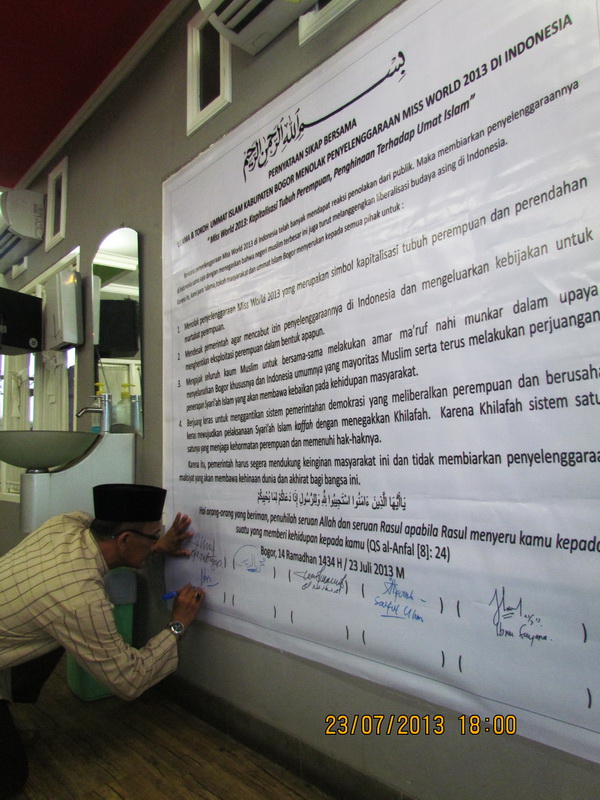 بسم الله الرحمن الرحيم
PERNYATAAN SIKAP BERSAMA
ULAMA & TOKOH UMMAT ISLAM KABUPATEN BOGOR MENOLAK PENYELENGGARAAN MISS WORLD 2013 DI INDONESIA
"Miss World 2013: Kapitalisasi Tubuh Perempuan, Penghinaan Terhadap Umat Islam"
Rencana penyelenggaraan Miss World 2013 di Indonesia telah banyak mendapat reaksi penolakan dari publik. Maka membiarkan penyelenggaraannya
di Indonesia sama saja dengan menegaskan bahwa negeri muslim terbesar ini juga turut melanggengkan liberalisasi budaya asing di Indonesia.
Karena itu, kami para ulama, tokoh masyarakat dan ummat Islam Bogor menyerukan kepada semua pihak untuk :
1. Menolak penyelenggaraan Miss World 2013 yang merupakan simbol kapitalisasi tubuh perempuan dan perendahan
martabat perempuan.
2. Mendesak pemerintah agar mencabut izin penyelenggaraannya di Indonesia dan mengeluarkan kebijakan untuk
menghentikan eksploitasi perempuan dalam bentuk apapun.
3. Mengajak seluruh kaum Muslim untuk bersama-sama melakukan amar ma'ruf nahi munkar dalam upaya
menyelamatkan Bogor khususnya dan Indonesia umumnya yang mayoritas Muslim serta terus melakukan perjuangan
penerapan Syari'ah Islam yang akan membawa kebaikan pada kehidupan masyarakat.
4. Berjuang keras untuk menggantikan sistem pemerintahan demokrasi yang meliberalkan perempuan dan berusaha
keras mewujudkan pelaksanaan Syari'ah Islam kaffah dengan menegakkan Khilafah. Karena Khilafah sistem satu
satunya yang menjaga kehormatan perempuan dan memenuhi hak-haknya.
Karena itu, pemerintah harus segera mendukung keinginan masyarakat ini dan tidak membiarkan penyelenggaraa
maksiyat yang akan membawa kehinaan dunia dan akhirat bagi bangsa ini.
يَاأَيُّهَا الَّذِينَ ءَامَنُوا اسْتَجِيبُوا لِلَّهِ وَلِلرَّسُولِ إِذَا دَعَاكُمْ لِمَا يُحْيِيكُمْ
Hai orang-orang yang beriman, penuhilah seruan Allah dan seruan Rasul apabila Rasul menyeru kamu kepada
suatu yang memberi kehidupan kepada kamu (QS al-Anfal [8]: 24)
Bogor, 14 Ramadhan 1434 H / 23 Juli 2013 M
Saeful
23/07/2013 18:00